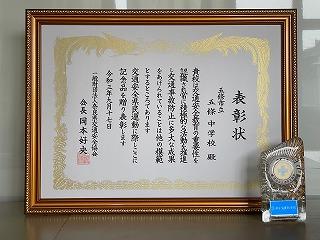 表彰状
五條市立
五條中学校 殿
貴校は交通安全教育の重要性を
認識され常に積極的な活動を推進
し交通事故防止に多大な成果
をあげられていることは他の模範
とするところであります
交通安全県民運動に際しここに
記念品を贈り表彰します
令和三年九月十七日
一般財団法人奈良県交通安全協会
会長 岡本好央